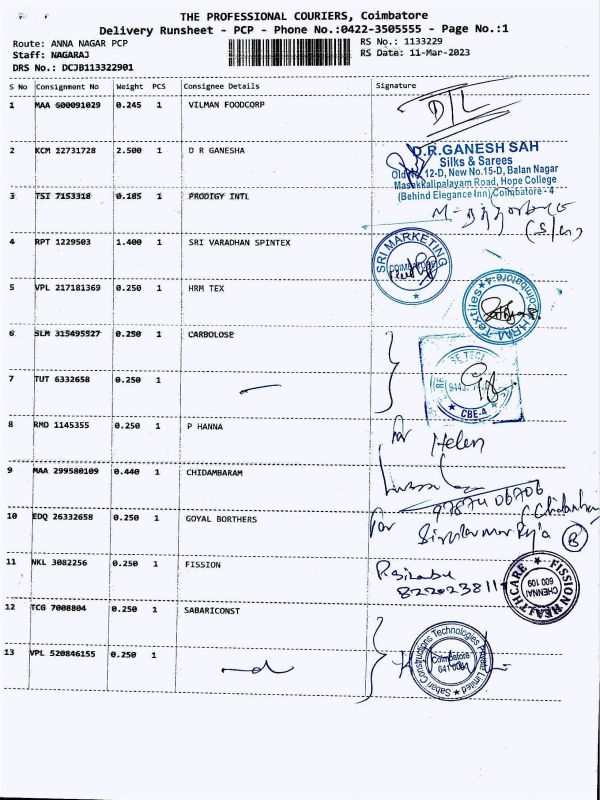 THE PROFESSIONAL COURIERS, Coimbatore
Delivery Runsheet - PCP - Phone No.:0422-3505555 - Page No.:1
Route: ANNA NAGAR PCP
RS No.: 1133229
Staff: NAGARAJ
RS Date: 11-Mar-2023
DRS No.: DCJB113322901
S No Consignment No Weight PCS Consignee Details Signature
1 MAA 600091029 0.245 1 VILMAN FOODCORP
D/L
2 KCM 12731728 2.500 1 D R GANESHA
D.R.GANESH SAH
Silks & Sarees
Old No. 12-D, New No.15-D, Balan Nagar
Masakkalipalayam Road, Hope College
(Behind Elegance Inn) Coimbatore - 4
3 TSI 7153318 0.185 1 PRODIGY INTL
4 RPT 1229503 1.400 1 SRI VARADHAN SPINTEX
SRI MARKETING
COIMBATORE
5 VPL 217181369 0.250 1 HRM TEX
HRM Textiles Coimbatore-4
6 SLM 315495527 0.250 1 CARBOLOSE
7 TUT 6332658 0.250 1
SE TEC
CBE-4
8 RMD 1145355 0.250 1 P HANNA
for Helen
9 MAA 299580109 0.440 1 CHIDAMBARAM
97874 06706
10 EDQ 26332658 0.250 1 GOYAL BORTHERS
for
11 NKL 3082256 0.250 1 FISSION
8220238117
FISSION HEALTHCARE
CHENNAI
600 109
12 TCG 7008804 0.250 1 SABARICONST
13 VPL 520846155 0.250 1
Sabari Constructions Technologies Private Limited
Coimbatore